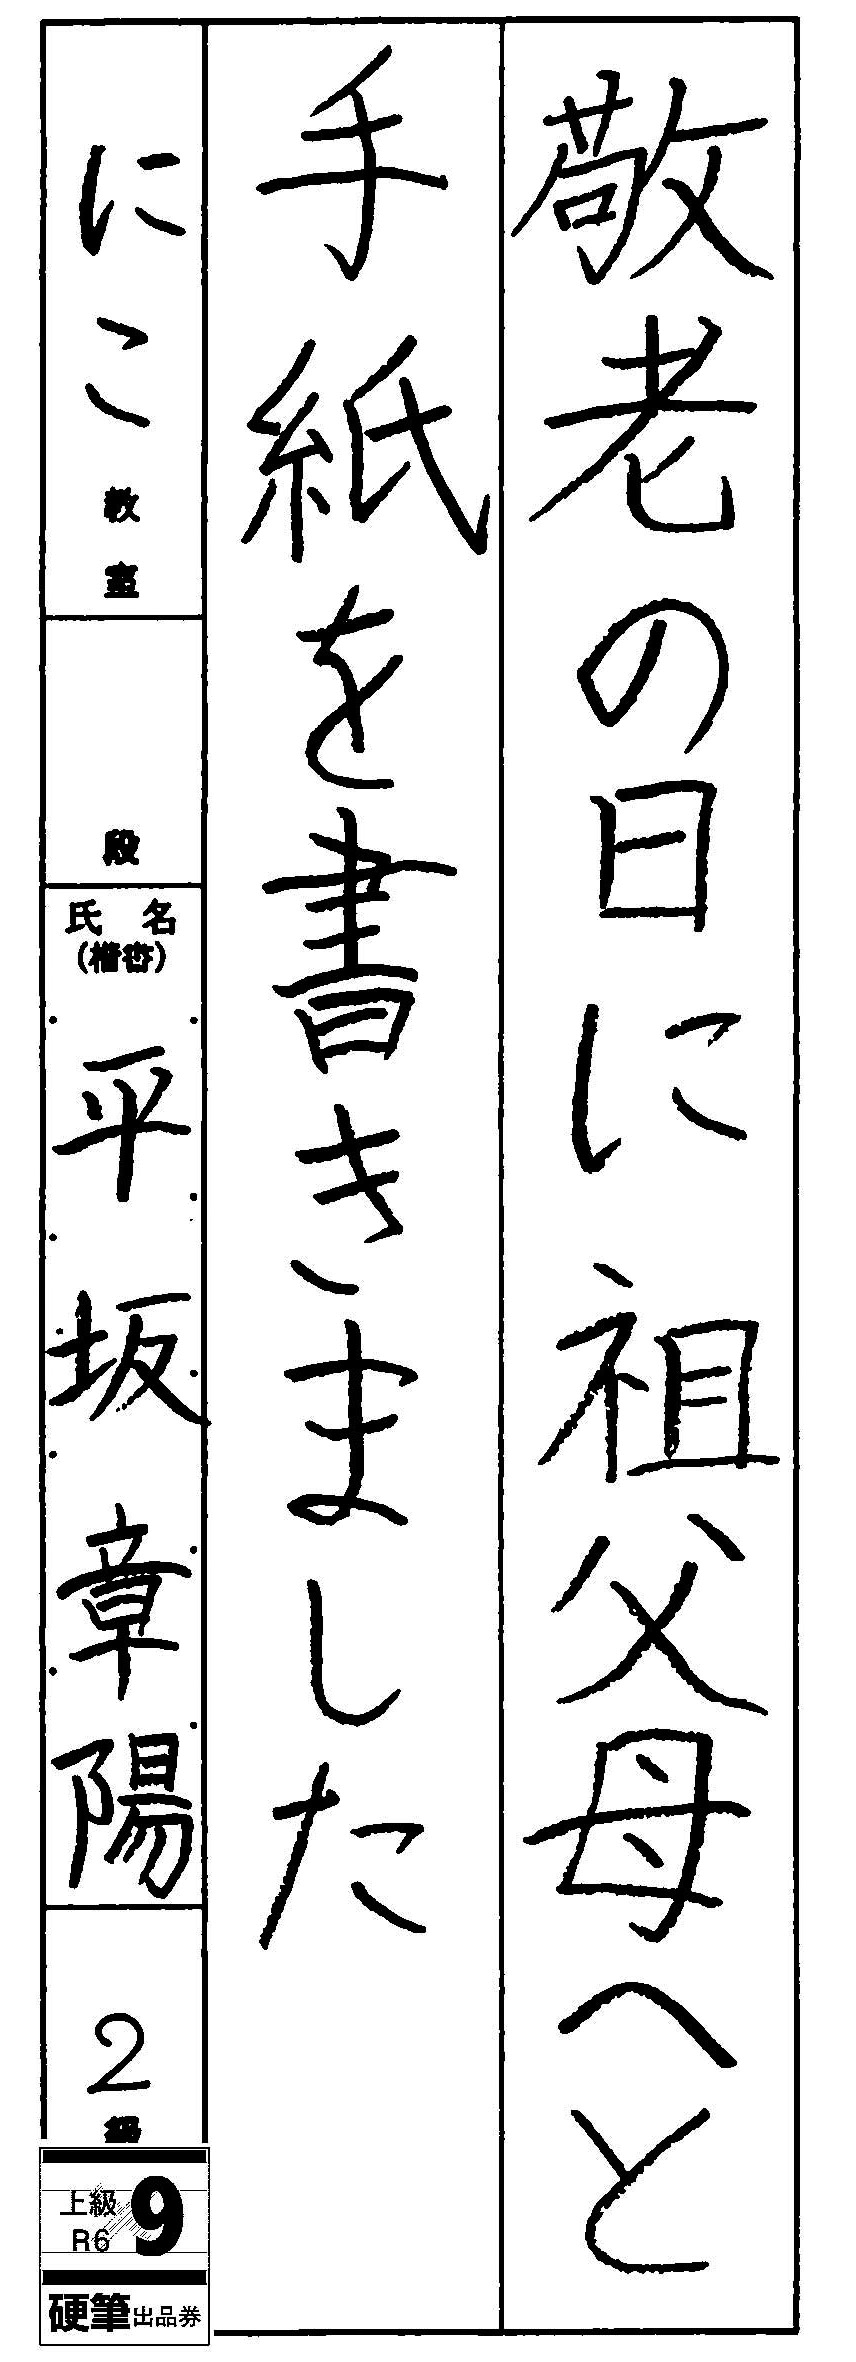 敬老の日に祖父母へと
手紙を書きました
にこ教室
段
氏名
(楷書)
平坂章陽
2級
上級
R6
9
硬筆出品券